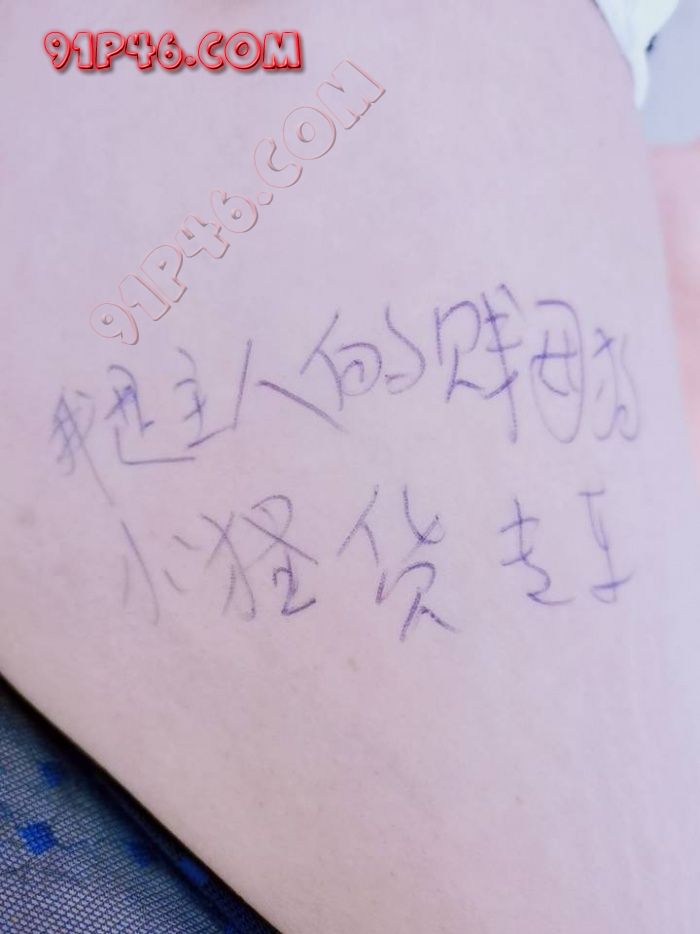 91P46.COM
91P46.COM
我是主人的贱母狗
小 货